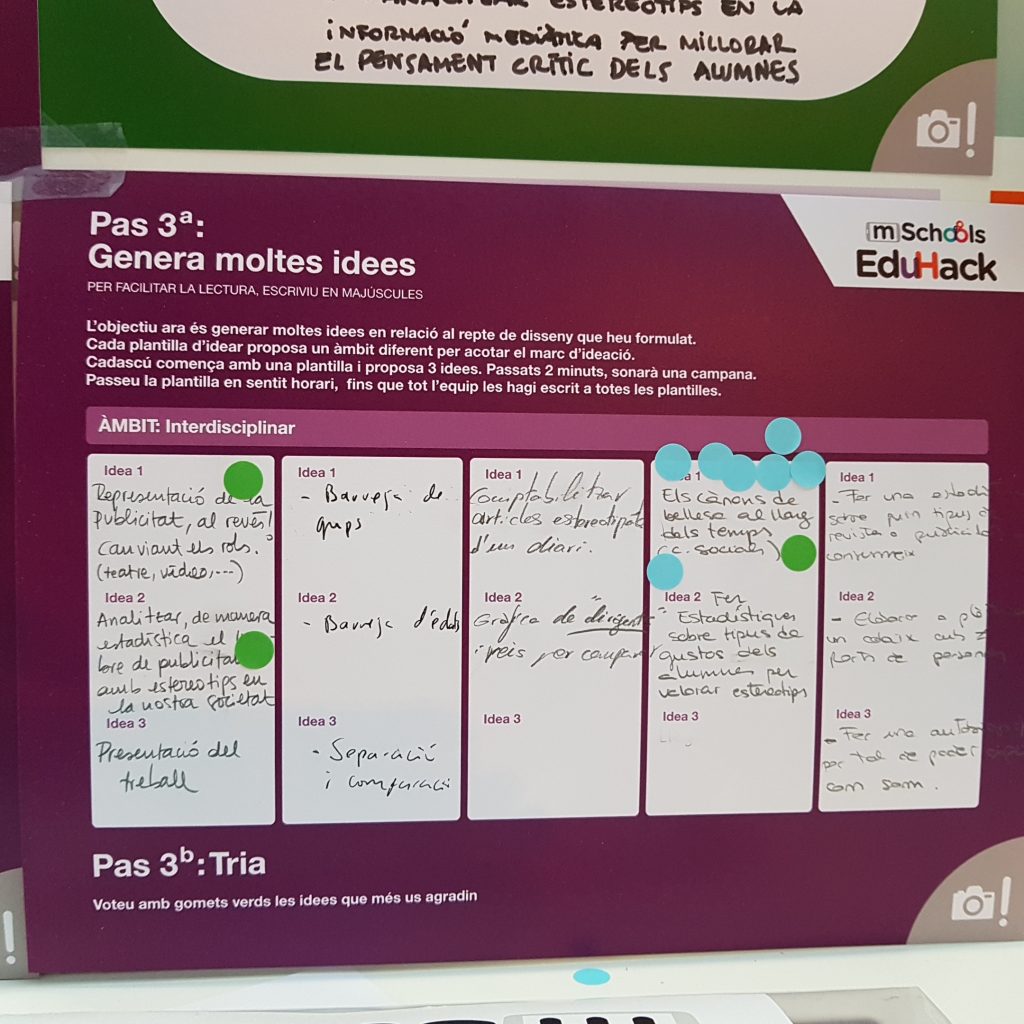 ESTEREOTIPS EN LA
INFORMACIÓ MEDIÀTICA PER MILLORAR
EL PENSAMENT CRÍTIC DELS ALUMNES
Pas 3ª:
Genera moltes idees
PER FACILITAR LA LECTURA, ESCRIVIU EN MAJÚSCULES
mSchools
EduHack
L'objectiu ara és generar moltes idees en relació al repte de disseny que heu formulat.
Cada plantilla d'idear proposa un àmbit diferent per acotar el marc d'ideació.
Cadascú comença amb una plantilla i proposa 3 idees. Passats 2 minuts, sonarà una campana.
Passeu la plantilla en sentit horari, fins que tot l'equip les hagi escrit a totes les plantilles.
ÀMBIT: Interdisciplinar
Idea 1
Representació de la
publicitat, al revés!
Canviant els rols.
(teatre, vídeo,...)
Idea 2
Analitzar, de manera
estadística el
bre de publicitat
amb estereotips en
la nostra societat
Idea 3
Presentació del
treball
Idea 1
- Barreja de
grups
Idea 2
- Barreja d'edats
Idea 3
- Separació
i comparació
Idea 1
Comptabilitzar
articles estereotipats
d'un diari.
Idea 2
Gràfica de dirigents
i reis per comparar
Idea 3
Els cànons de
bellesa al llarg
dels temps
(c. socials)
Idea 2 Fer
Estadístiques
sobre tipus de
gustos dels
alumnes per
valorar estereotips
Idea 3
Idea 1
- Fer una
sobre quin tipus
revista o publicitat
Idea 2
- Elaborar a
un amb
de
Idea 3
- Fer una
per tal de poder
com som.
Pas 3b: Tria
Voteu amb gomets verds les idees que més us agradin